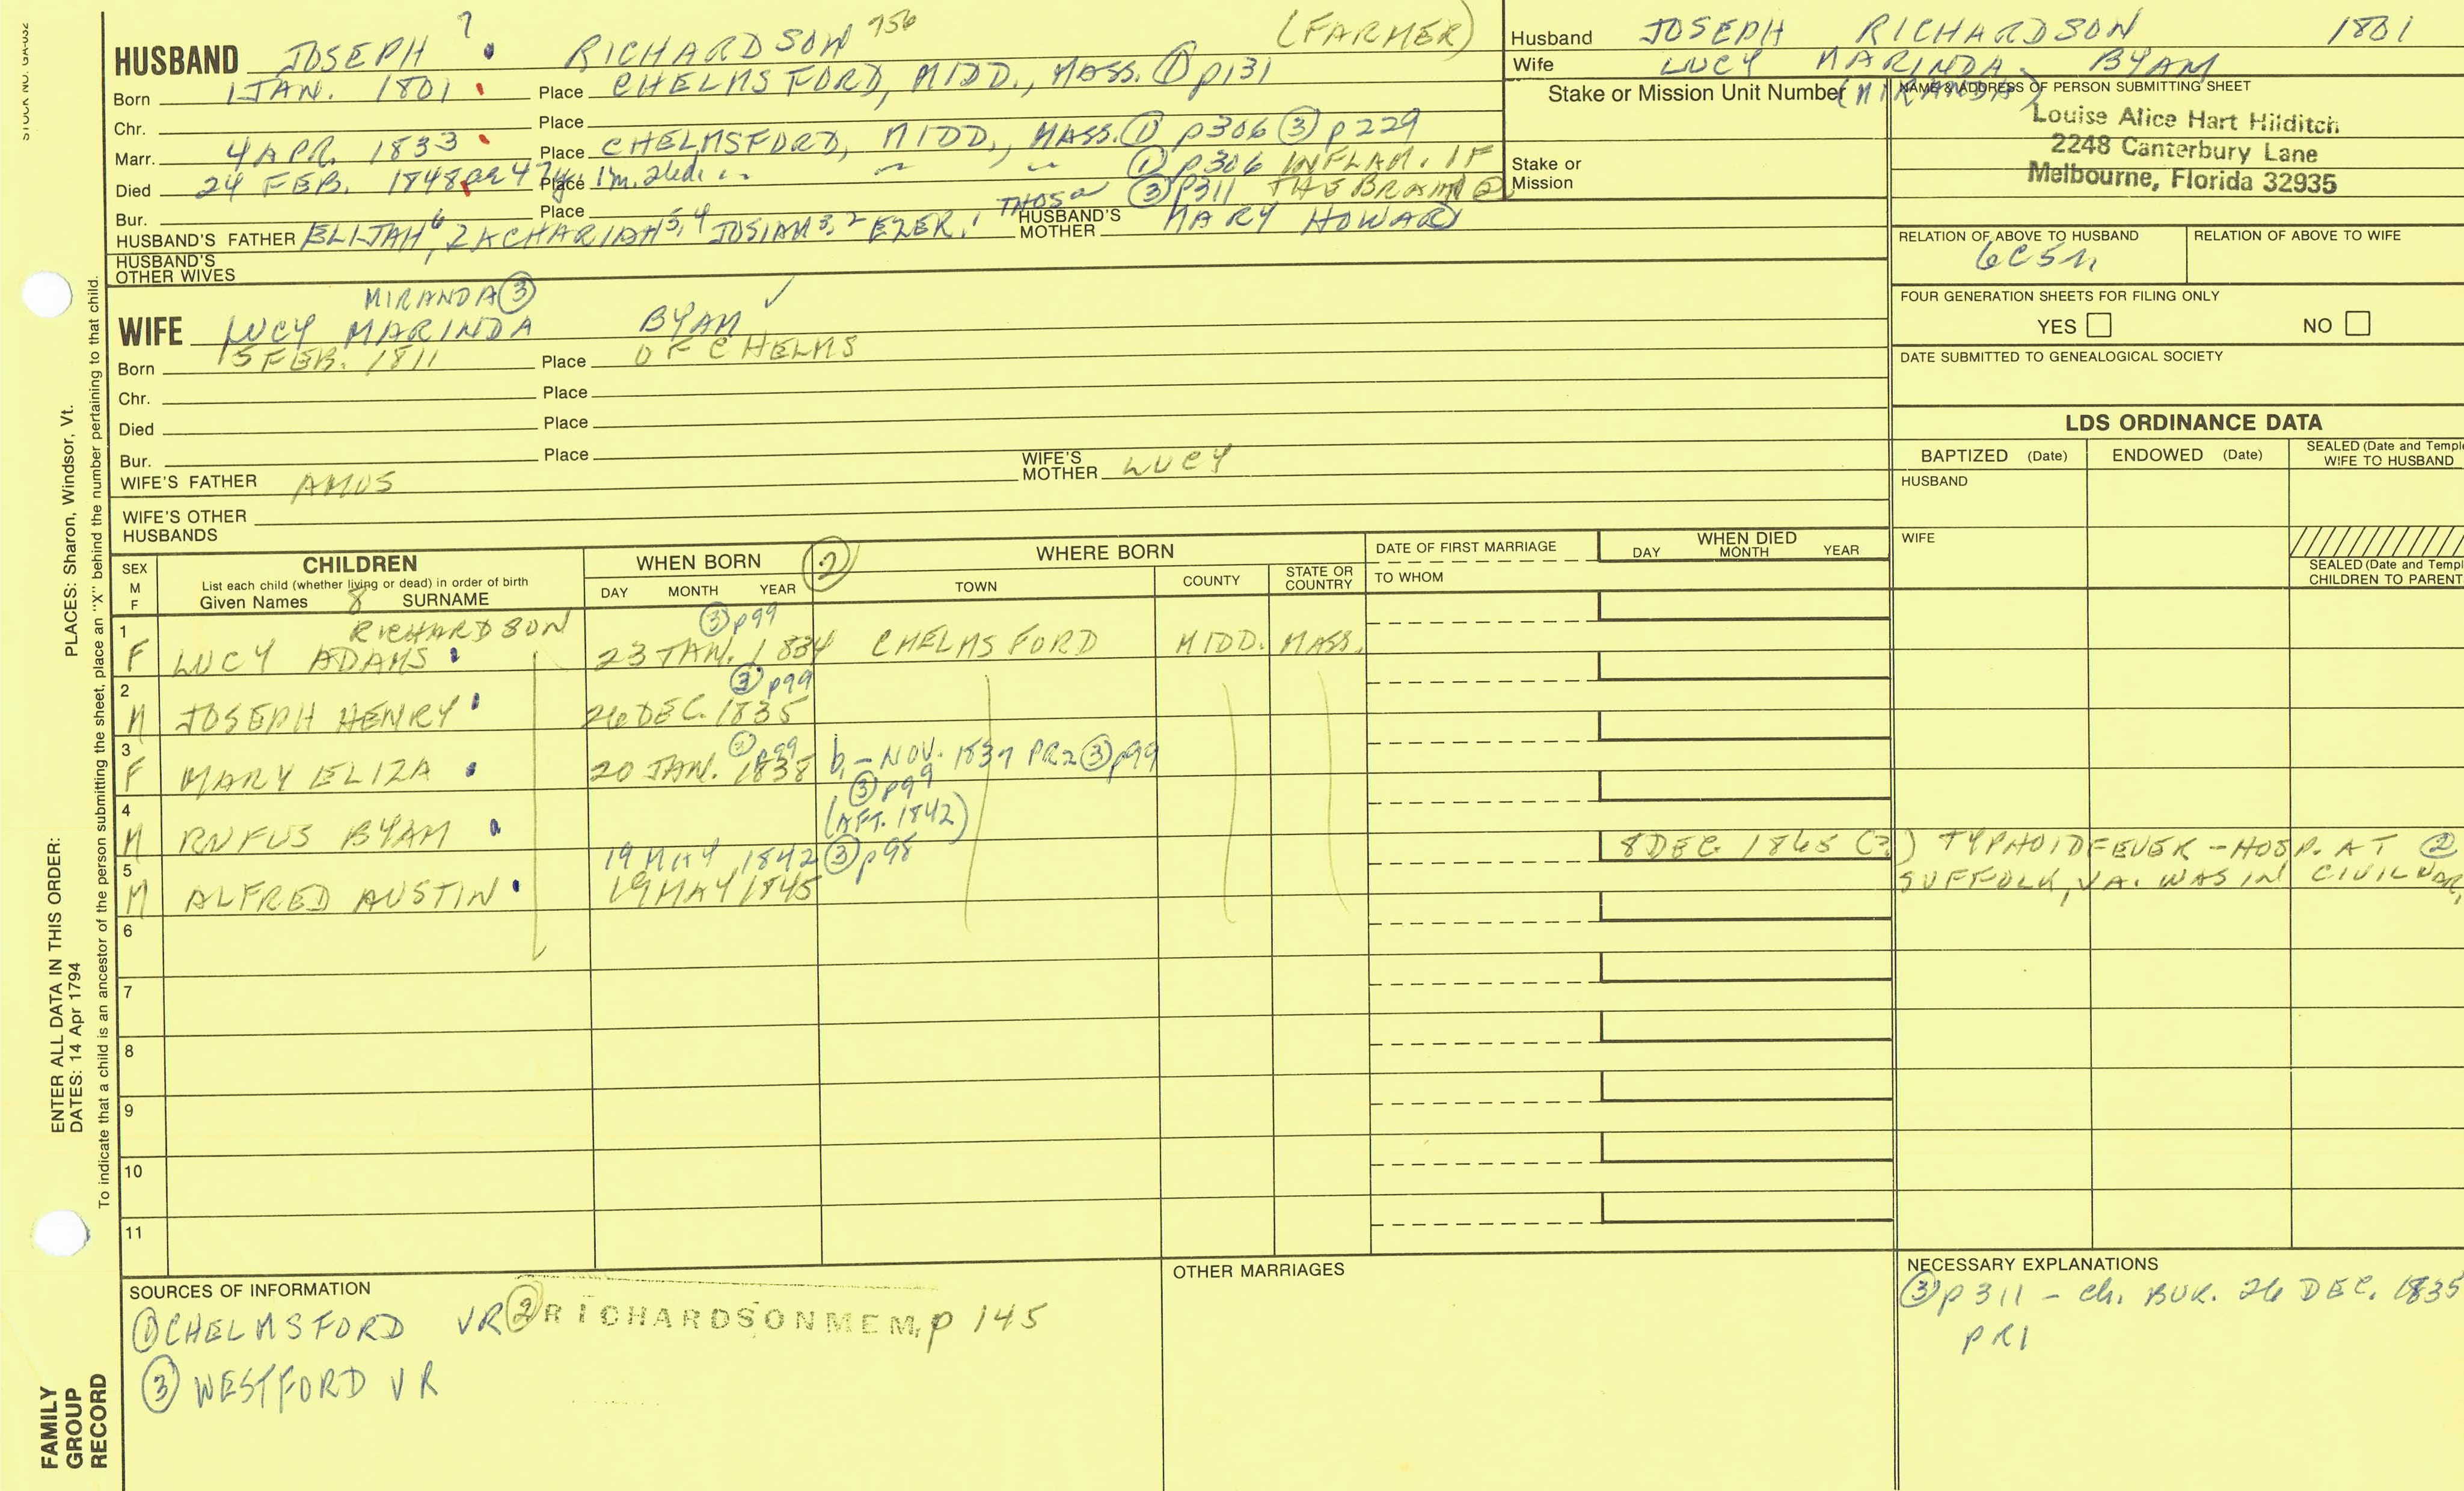 STOCK NO. GA-032
HUSBAND JOSEPH ? RICHARDSON 756 (FARMER)
Born 1 JAN. 1801 Place CHELMSFORD, MIDD., MASS. ① p131
Chr. Place
Marr. 4 APR. 1833 Place CHELMSFORD, MIDD., MASS. ① p306 ③ p229
Died 24 FEB. 1848 ae 47y. 1m. 24d. Place ① p306 INFLAM. OF
③ p311 THE BRAIN ②
Bur. Place
HUSBAND'S FATHER ELIJAH 6, ZACHARIAH 5,4 JOSIAH 3,2 EZER, 1 THOS HUSBAND'S MOTHER MARY HOWARD
HUSBAND'S OTHER WIVES
MIRANDA ③
WIFE LUCY MARINDA BYAM ✓
Born 15 FEB. 1811 Place OF CHELMS
Chr. Place
Died Place
Bur. Place
WIFE'S FATHER AMOS WIFE'S MOTHER LUCY
WIFE'S OTHER HUSBANDS
Husband JOSEPH RICHARDSON 1801
Wife LUCY MARINDA BYAM
(MIRANDA)
Stake or Mission Unit Number
Stake or Mission
NAME & ADDRESS OF PERSON SUBMITTING SHEET
Louise Alice Hart Hilditch
2248 Canterbury Lane
Melbourne, Florida 32935
RELATION OF ABOVE TO HUSBAND RELATION OF ABOVE TO WIFE
6C5R
FOUR GENERATION SHEETS FOR FILING ONLY
YES NO
DATE SUBMITTED TO GENEALOGICAL SOCIETY
LDS ORDINANCE DATA
BAPTIZED (Date) ENDOWED (Date) SEALED (Date and Temple) WIFE TO HUSBAND
HUSBAND
WIFE
SEALED (Date and Temple) CHILDREN TO PARENTS
SEX M F
CHILDREN
List each child (whether living or dead) in order of birth
Given Names 8 SURNAME
WHEN BORN ② WHERE BORN
DAY MONTH YEAR TOWN COUNTY STATE OR COUNTRY
DATE OF FIRST MARRIAGE
TO WHOM
WHEN DIED
DAY MONTH YEAR
RICHARDSON ③ p99
1 F LUCY ADAMS 23 JAN. 1834 CHELMSFORD MIDD. MASS.
③ p99
2 M JOSEPH HENRY 26 DEC. 1835
③ p99
3 F MARY ELIZA 20 JAN. 1838 b. – NOV. 1837 PR2 ③ p99
③ p99
4 M RUFUS BYAM (AFT. 1842)
19 MAY 1842 ③ p98 8 DEC. 1865 (?) TYPHOID FEVER – HOSP. AT ②
5 M ALFRED AUSTIN 19 MAY 1845 SUFFOLK, VA. WAS IN CIVIL WAR,
6
7
8
9
10
11
SOURCES OF INFORMATION
① CHELMSFORD VR ② RICHARDSON MEM. p 145
③ WESTFORD VR
OTHER MARRIAGES
NECESSARY EXPLANATIONS
③ p 311 – ch. BUR. 26 DEC. 1835
PR1
PLACES: Sharon, Windsor, Vt.
To indicate that a child is an ancestor of the person submitting the sheet, place an "X" behind the number pertaining to that child.
ENTER ALL DATA IN THIS ORDER:
DATES: 14 Apr 1794
FAMILY GROUP RECORD